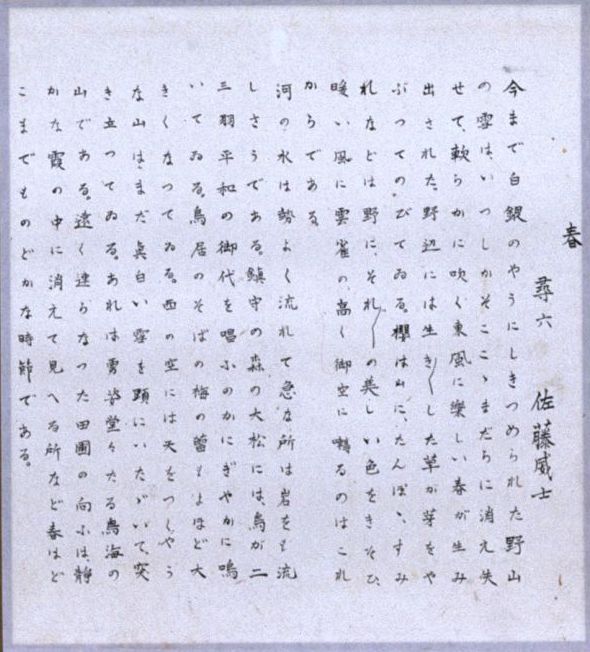 春
尋六 佐藤威士
今まで白銀のやうにしきつめられた野山
の雪は、いつしかそここゝまだらに消え失
せて、軟らかに吹く東風に楽しい春が生み
出された。野辺には生き〳〵した草が芽をや
ぶつてのびてゐる。櫻は山に、たんぽゝ、すみ
れなどは野に、それ〴〵の美しい色をきそひ、
暖い風に雲雀の高く御空に囀るのはこれ
からである。
河の水は勢よく流れて急な所は岩をも流
しさうである。鎮守の森の大松には、鳥が二
三羽平和の御代を唱ふのかにぎやかに鳴
いてゐる。鳥居のそばの梅の蕾もよほど大
きくなつてゐる。西の空には天をつくやう
な山はまだ真白い雪を頭にいたゞいて、突
き立つてゐる。あれは勇姿堂々たる鳥海の
山である。遠く連らなつた田圃の向ふは静
かな霞の中に消えて見へる所など春はど
こまでものどかな時節である。